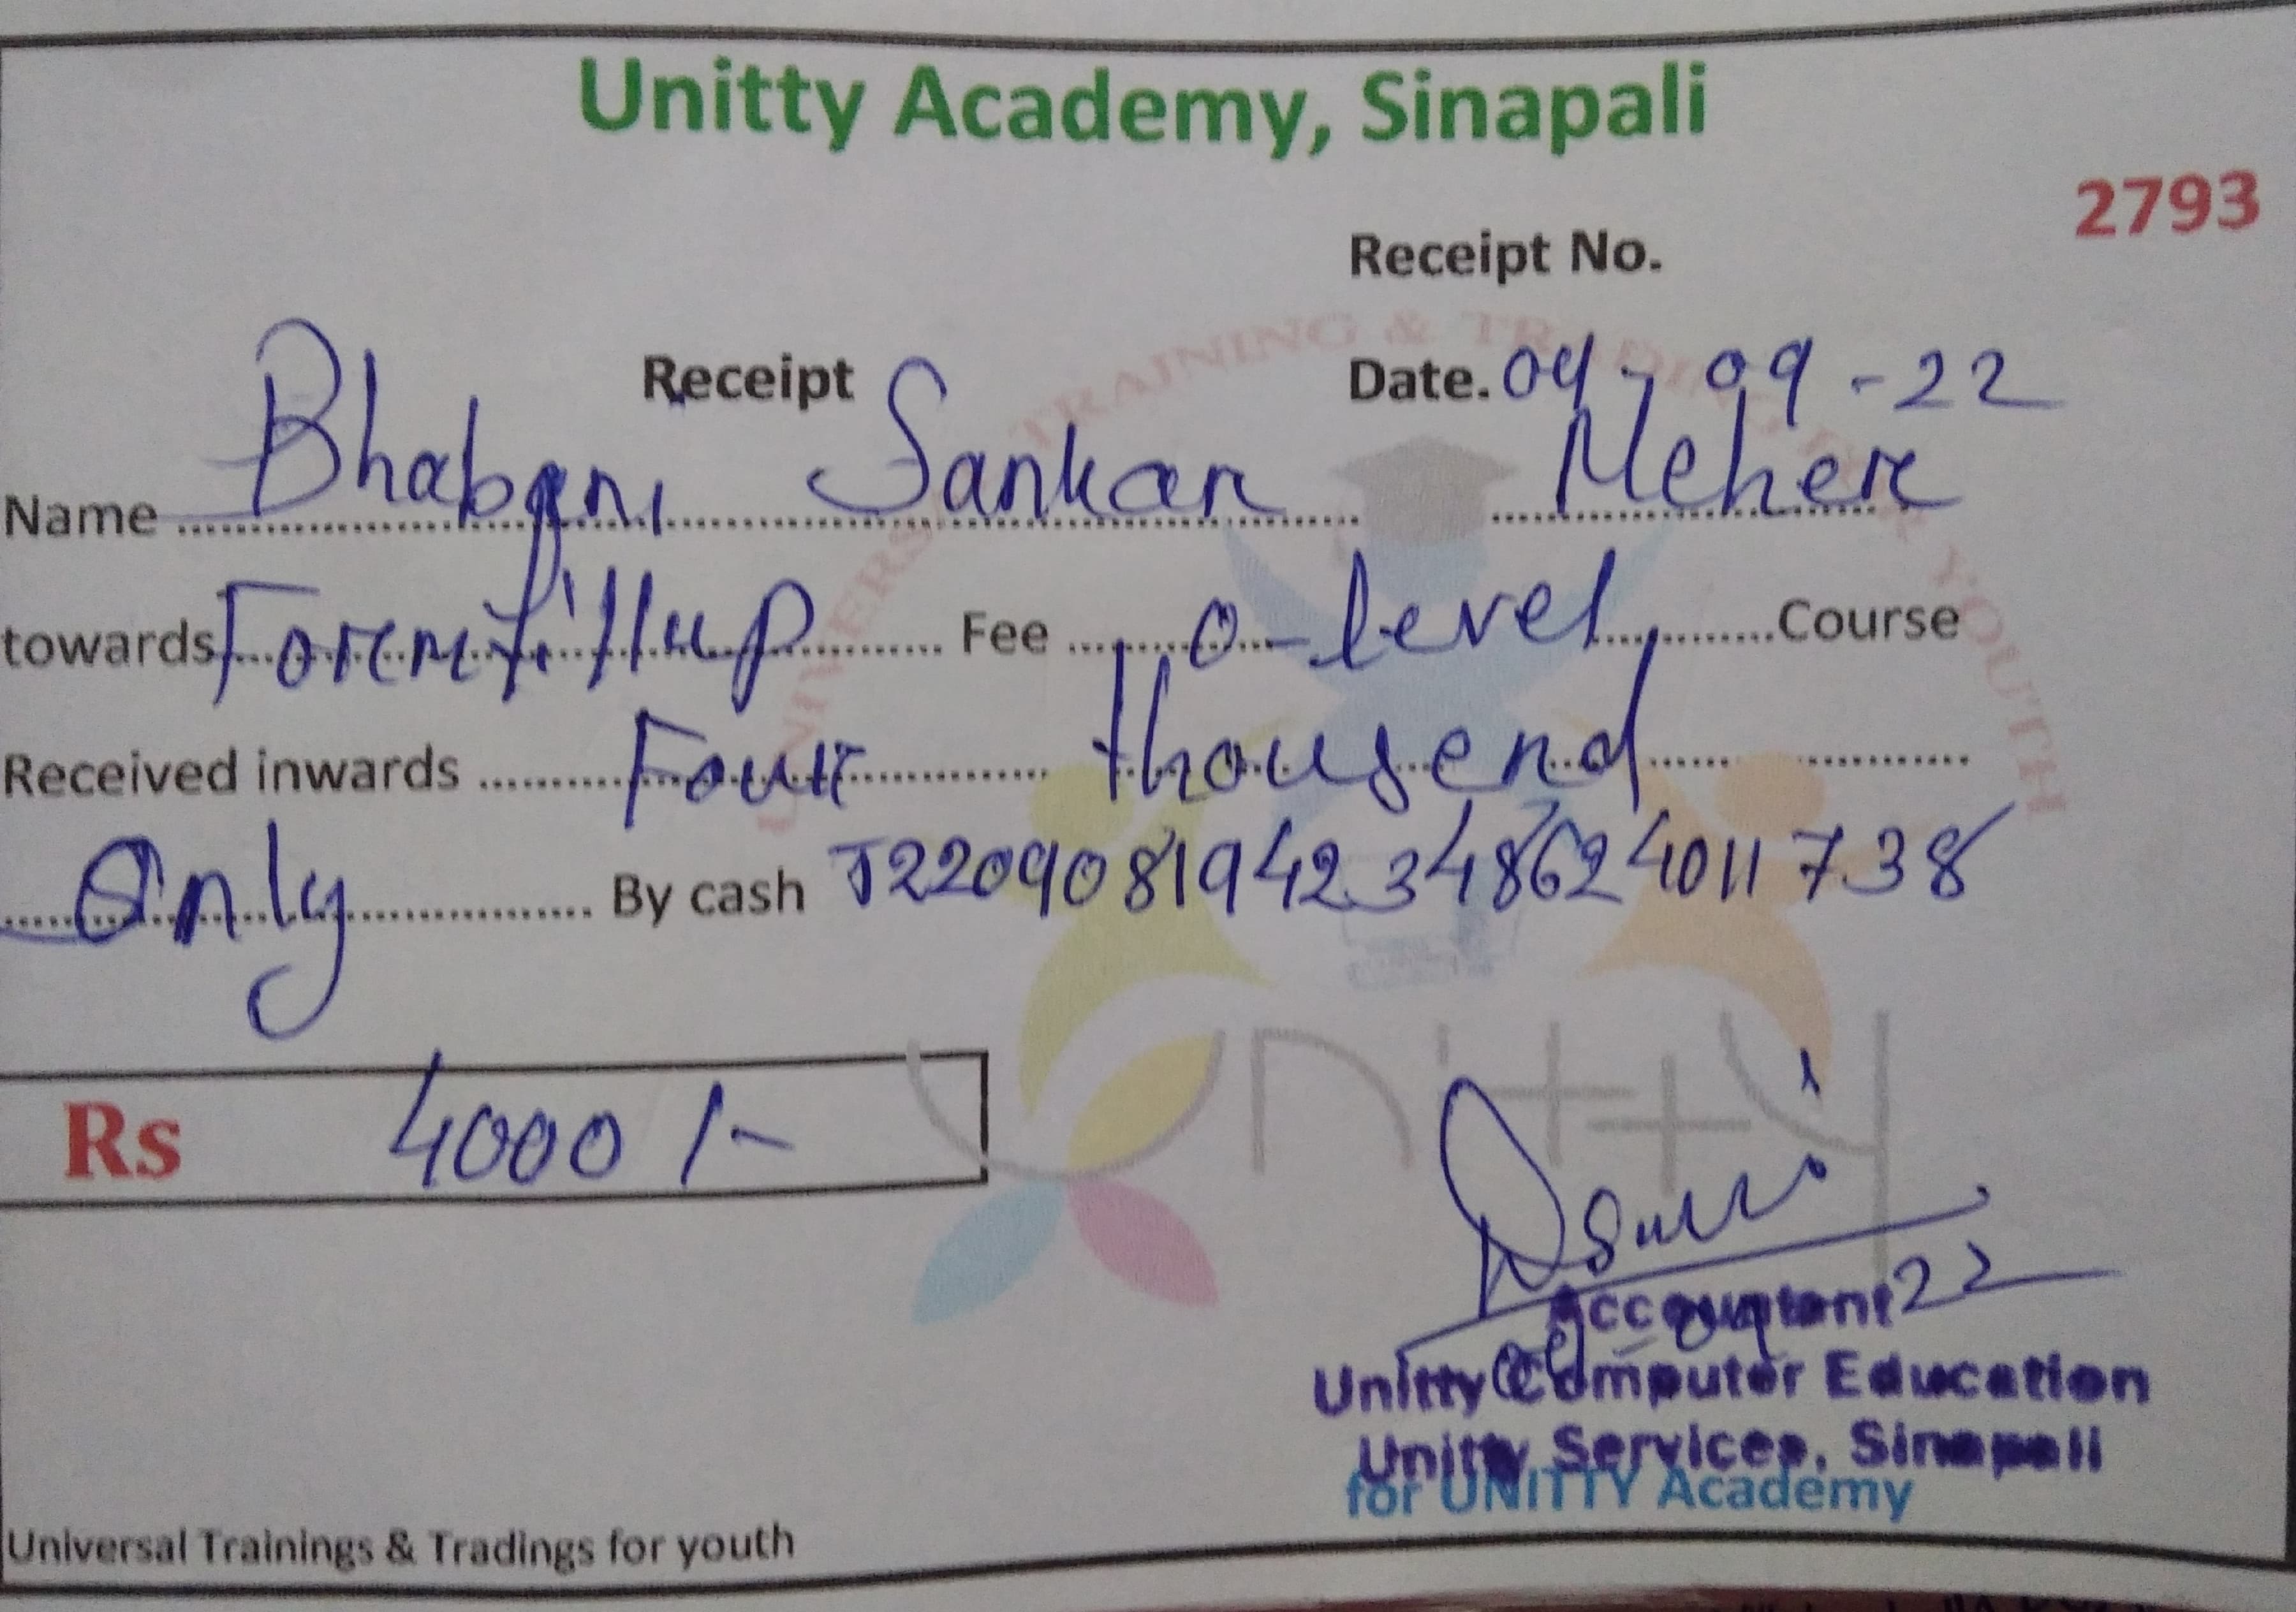 Unitty Academy, Sinapali
2793
Receipt No.
Receipt Date. 09-09-22
Name Bhabani Sankar Meher
towards Formfillup Fee o-level Course
Received inwards Four thousend
Only By cash T2209081942348624011738
Rs 4000/-
22
Accountant
09-09
Unitty Computer Education
Unitty Services, Sinapali
for UNITTY Academy
Universal Trainings & Tradings for youth
UNIVERSAL TRAINING & TRADING FOR YOUTH
Unitty